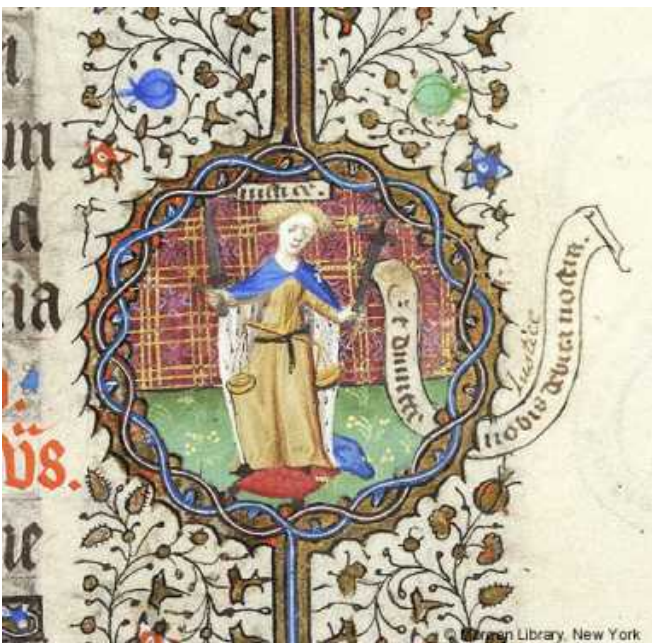 iustice.
Et dimitte
nobis debita nostra.
Justice
ia
us.
ie
© Morgan Library, New York